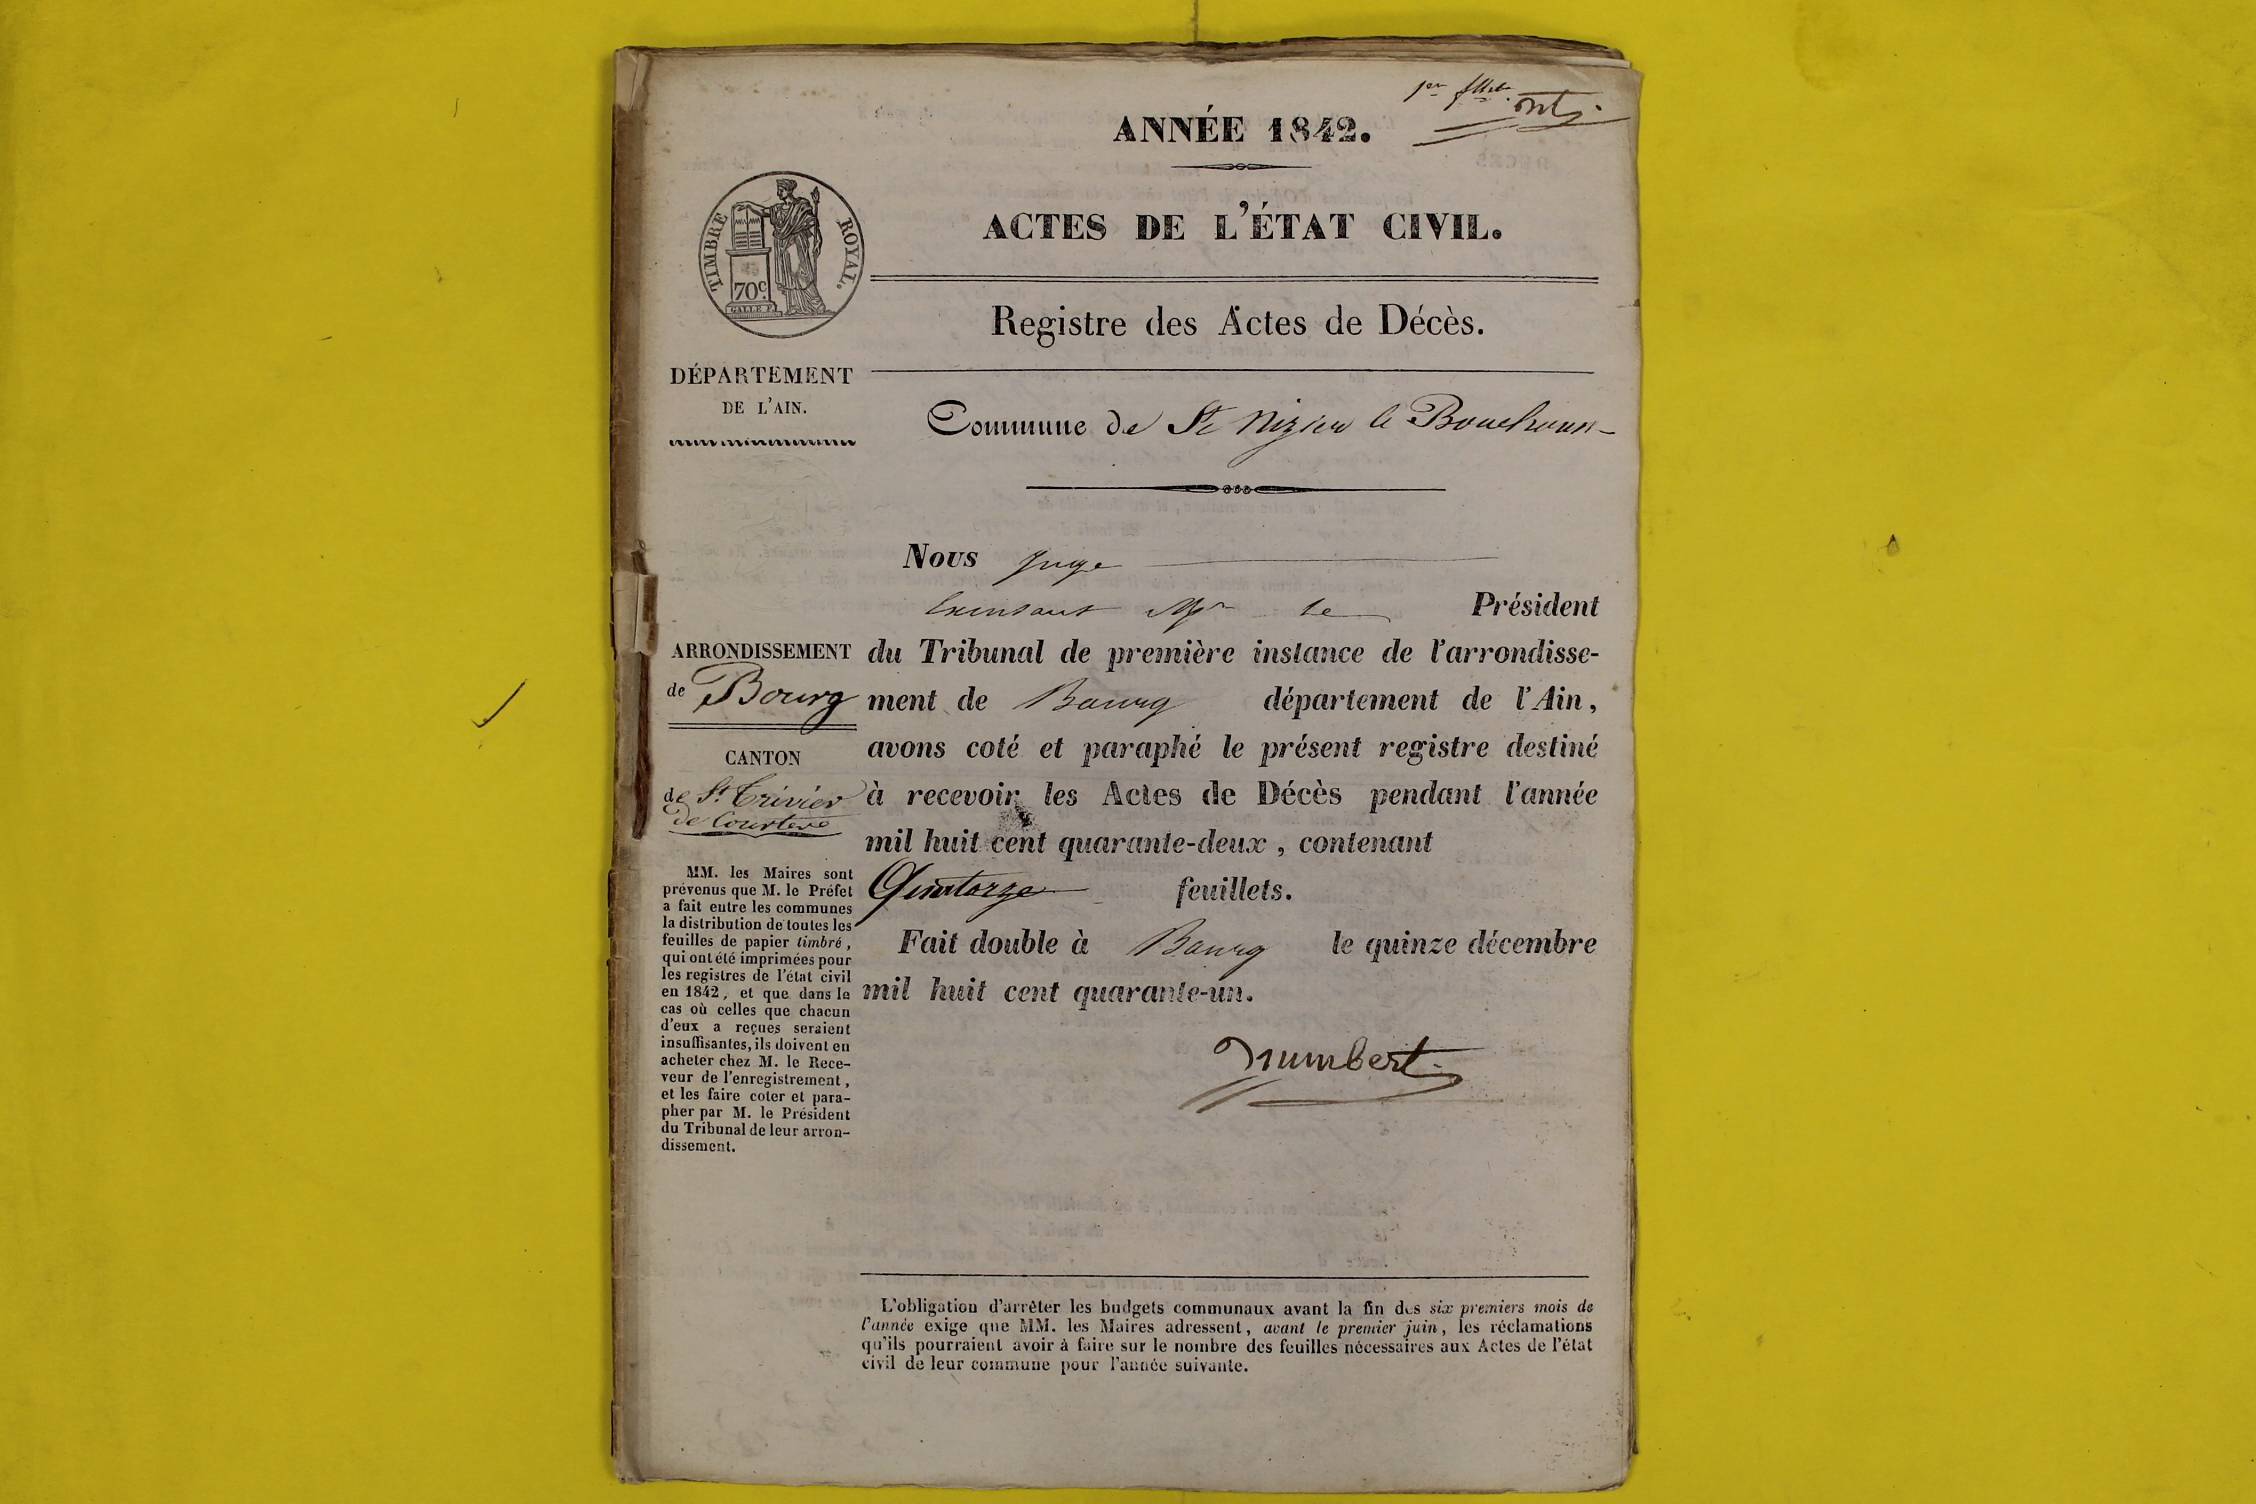 1er f
ANNÉE 1842.
ACTES DE L'ÉTAT CIVIL.
TIMBRE ROYAL.
70c.
GALLE F.
Registre des Actes de Décès.
DÉPARTEMENT
DE L'AIN.
Commune de St Nizier le Bouchoux
Nous Juge
Mr le Président
du Tribunal de première instance de l'arrondisse-
ment de Bourg département de l'Ain,
avons coté et paraphé le présent registre destiné
à recevoir les Actes de Décès pendant l'année
mil huit cent quarante-deux, contenant
Quatorze feuillets.
Fait double à Bourg le quinze décembre
mil huit cent quarante-un.
ARRONDISSEMENT
de Bourg
CANTON
de St. Trivier
de Courtes
MM. les Maires sont
prévenus que M. le Préfet
a fait entre les communes
la distribution de toutes les
feuilles de papier timbré,
qui ont été imprimées pour
les registres de l'état civil
en 1842, et que dans le
cas où celles que chacun
d'eux a reçues seraient
insuffisantes, ils doivent en
acheter chez M. le Rece-
veur de l'enregistrement,
et les faire coter et para-
pher par M. le Président
du Tribunal de leur arron-
dissement.
L'obligation d'arrêter les budgets communaux avant la fin des six premiers mois de
l'année exige que MM. les Maires adressent, avant le premier juin, les réclamations
qu'ils pourraient avoir à faire sur le nombre des feuilles nécessaires aux Actes de l'état
civil de leur commune pour l'année suivante.